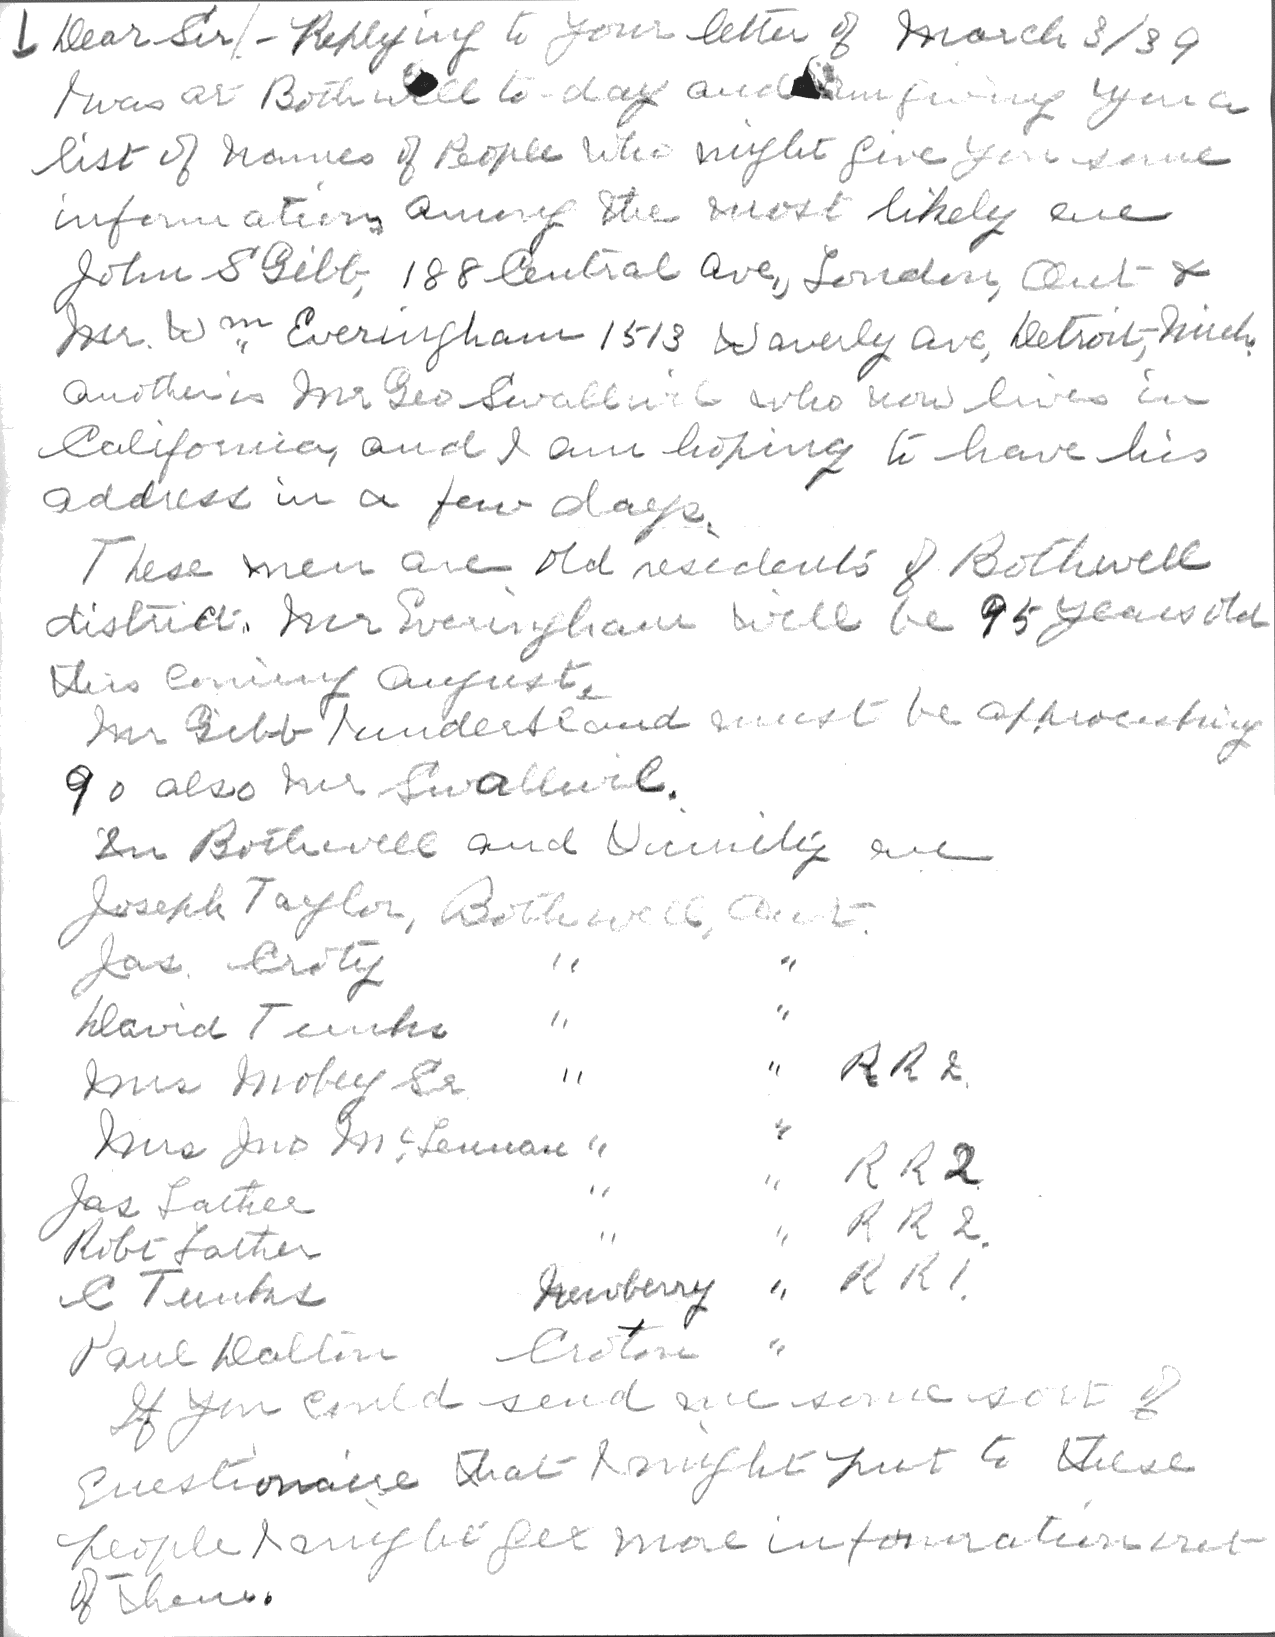 Dear Sir/- Replying to your letter of March 3/39
I was at Bothwell to-day and am giving you a
list of names of People who might give you some
information, among the most likely are
John S Gibb, 188 Central Ave., London, Ont &
Mr. Wm Everingham 1513 Waverly Ave, Detroit, Mich.
another is Mr Geo Swallwil who now lives in
California, and I am hoping to have his
address in a few days.
These men are old residents of Bothwell
district. Mr Everingham will be 95 years old
this coming August.
Mr Gibb I understand must be approaching
90 also Mr Swallwil.
In Bothwell and Vicinity are
Joseph Taylor, Bothwell, Ont.
Jas. Croty " "
David Tunks " "
Mrs Mobey Sr " " RR2.
Mrs Jno McLennan " "
Jas Lather " " RR2
Robt Lather " " RR2.
C Tunks Newberry " RR1.
Paul Dalton Croton "
If you could send me some sort of
Questionaire that I might put to these
people I might get more information out
of them.